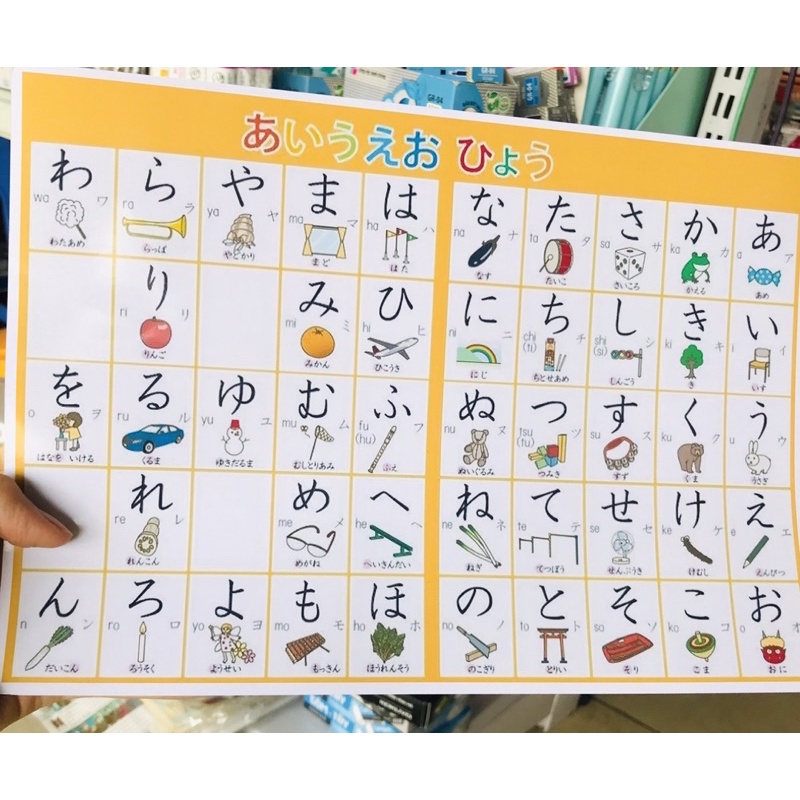 GR-04
GR-04
あいうえお ひょう
あ
a ア
あめ
い
i イ
いす
う
u ウ
うさぎ
え
e エ
えんぴつ
お
o オ
おに
か
ka カ
かえる
き
ki キ
き
く
ku ク
くま
け
ke ケ
けむし
こ
ko コ
こま
さ
sa サ
さいころ
し
shi (si) シ
しんごう
す
su ス
すず
せ
se セ
せんぷうき
そ
so ソ
そり
た
ta タ
たいこ
ち
chi (ti) チ
ちとせあめ
つ
tsu (tu) ツ
つみき
て
te テ
てつぼう
と
to ト
とりい
な
na ナ
なす
に
ni ニ
にじ
ぬ
nu ヌ
ぬいぐるみ
ね
ne ネ
ねぎ
の
no ノ
のこぎり
は
ha ハ
はた
ひ
hi ヒ
ひこうき
ふ
fu (hu) フ
ふえ
へ
he ヘ
へいきんだい
ほ
ho ホ
ほうれんそう
ま
ma マ
まど
み
mi ミ
みかん
む
mu ム
むしとりあみ
め
me メ
めがね
も
mo モ
もっきん
や
ya ヤ
やどかり
ゆ
yu ユ
ゆきだるま
よ
yo ヨ
ようせい
ら
ra ラ
らっぱ
り
ri リ
りんご
る
ru ル
くるま
れ
re レ
れんこん
ろ
ro ロ
ろうそく
わ
wa ワ
わたあめ
を
o ヲ
はなを いける
ん
n ン
だいこん